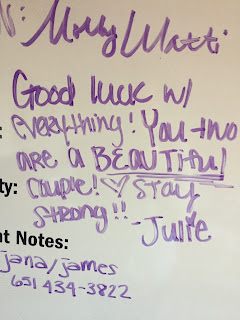 s: Molly/Matti
Good luck w/
everything! You two
are a BEAUTIFUL
ty: couple! ♡ Stay
strong!!
-Julie
nt Notes:
jana/james
651 434-3822